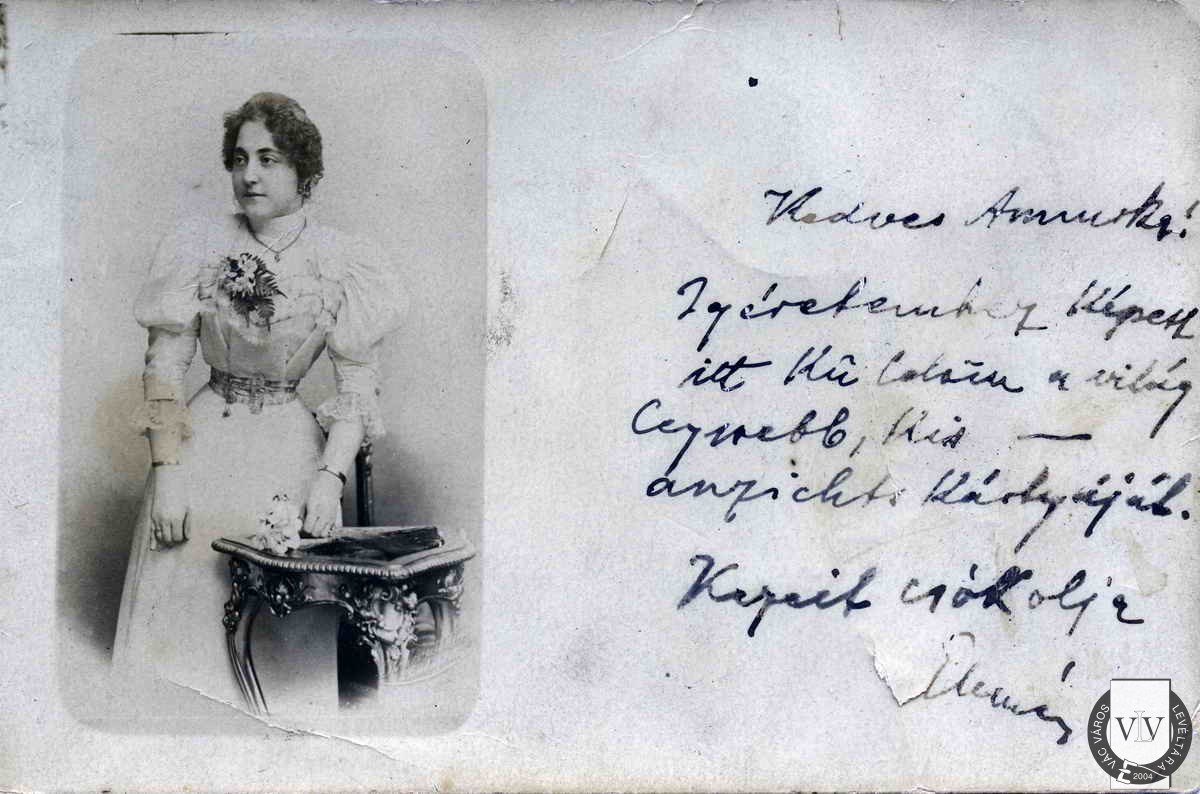 Kedves Annuska!
Igéretemhez képest
itt Kü ldöm a világ
legszebb, kis —
anzichts Kártyáját.
Kezeit csókolja
VÁC VÁROS LEVÉLTÁRA
VLV
2004